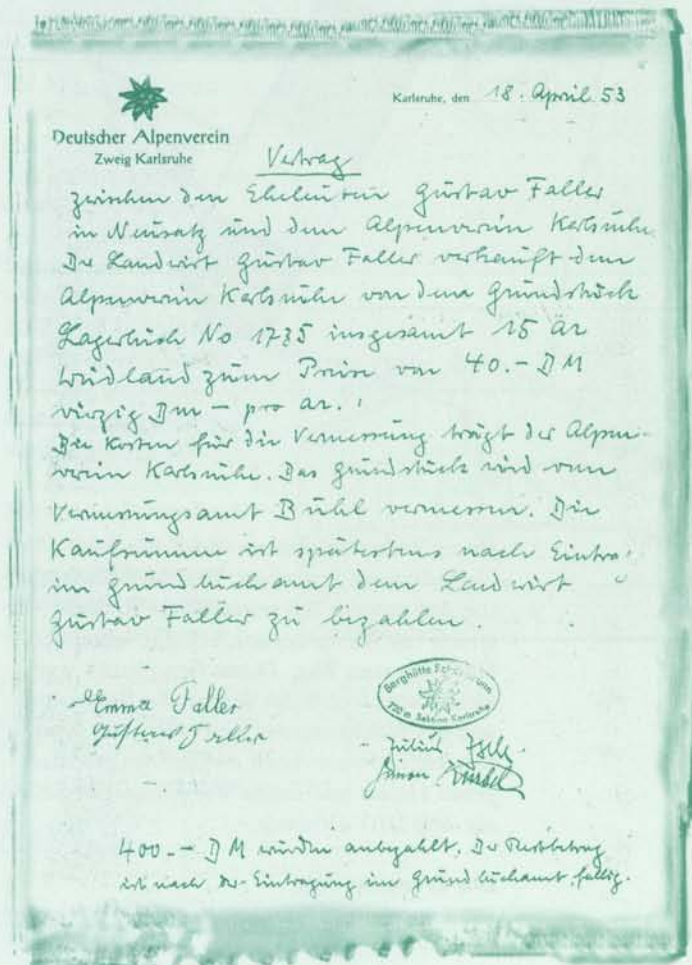 Karlsruhe, den 18. April 53
Deutscher Alpenverein
Zweig Karlsruhe
Vertrag
zwischen den Eheleuten Gustav Faller
in Neusatz und dem Alpenverein Karlsruhe.
Der Landwirt Gustav Faller verkauft dem
Alpenverein Karlsruhe von dem Grundstück
Lagerbuch No 1735 insgesamt 15 Ar
Wildland zum Preise von 40.- DM
vierzig DM - pro Ar.
Die Kosten für die Vermessung trägt der Alpen-
verein Karlsruhe. Das Grundstück wird vom
Vermessungsamt Bühl vermessen. Die
Kaufsumme ist spätestens nach Eintrag
im Grundbuchamt dem Landwirt
Gustav Faller zu bezahlen.
Emma Faller
Gustav Faller
Berghütte
720 m Sektion Karlsruhe
Julius
Simon
400.- DM wurden anbezahlt. Der Restbetrag
ist nach der Eintragung im Grundbuchamt fällig.